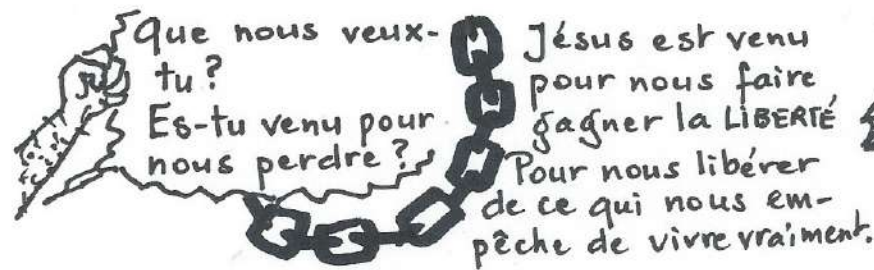 Que nous veux-
tu?
Es-tu venu pour
nous perdre?
Jésus est venu
pour nous faire
gagner la LIBERTÉ
Pour nous libérer
de ce qui nous em-
pêche de vivre vraiment.